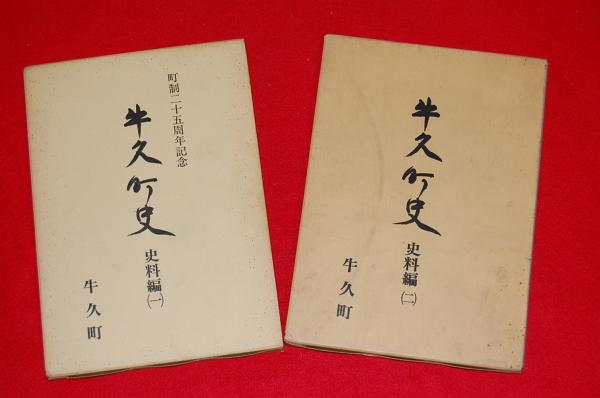 町制二十五周年記念
牛久町史
史料編(一)
牛久町
牛久町史
史料編(二)
牛久町